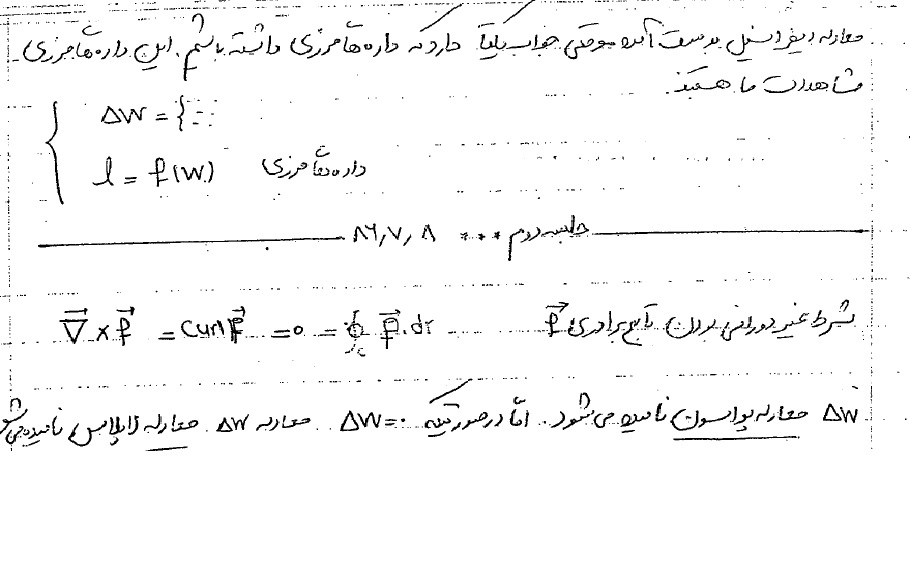 معادله دیفرانسیل بدست آمده موقتی جواب یکتا دارد که داده‌های مرزی داشته باشیم. این داده‌ها مرزی
مشاهدات ما هستند.
ΔW = { - : :
l = f(W) داده‌های مرزی
جلسه دوم *** ۸۶,۷,۸
شرط غیر دورانی بودن تابع برداری f⃗: ∇⃗ × f⃗ = Curl F⃗ = 0 = ∮c F⃗ . dr
ΔW معادله پواسون نامیده می‌شود. امّا در صورتیکه ΔW=۰ معادله ΔW معادله لاپلاس نامیده می‌شو